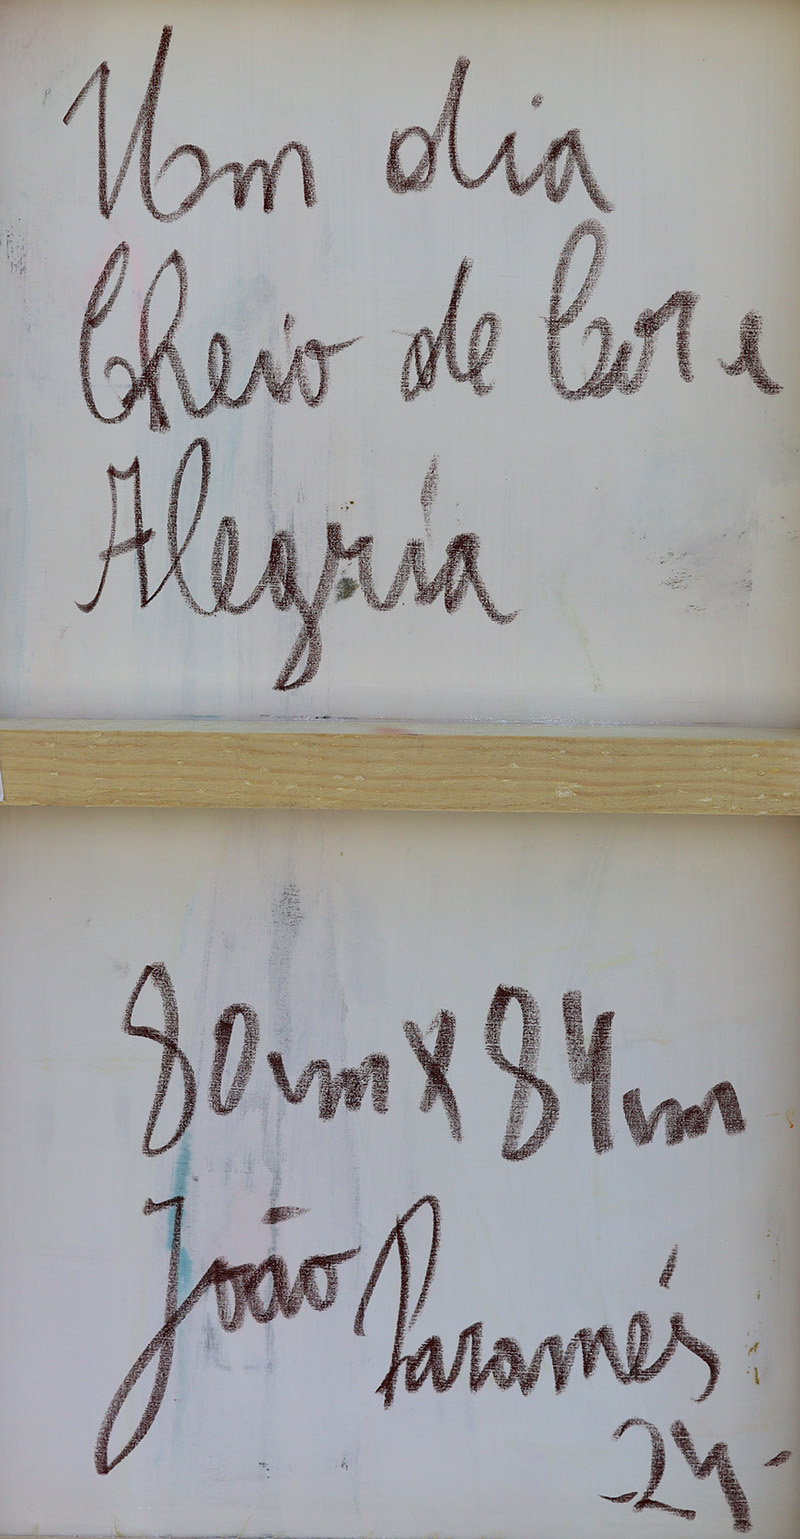 Um dia
Cheio de Cor e
Alegria
80cm x 84cm
João Paramés
-24-